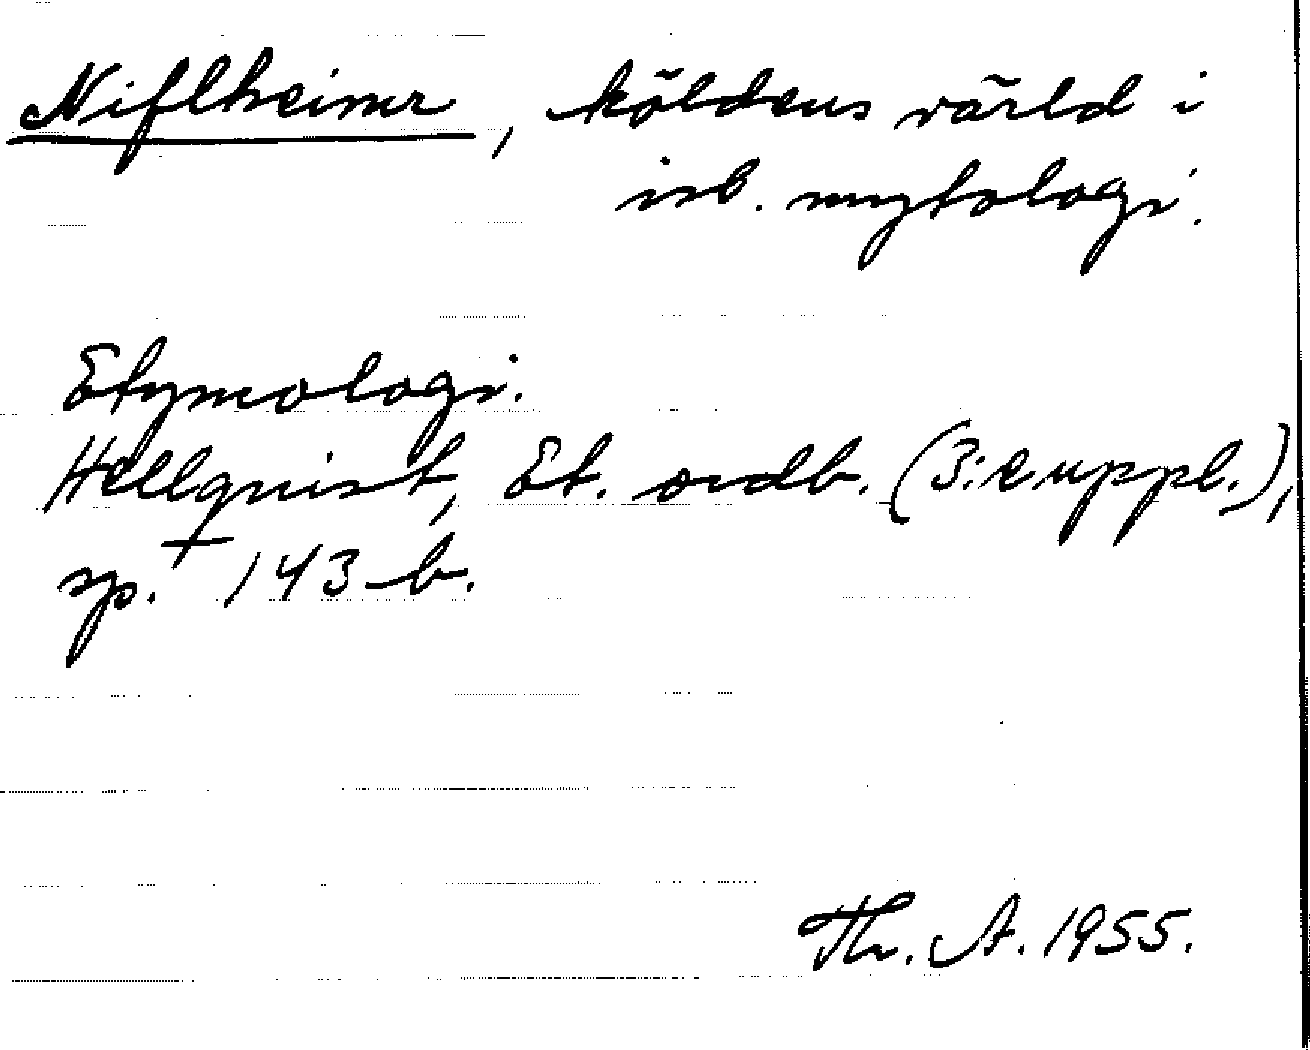 Niflheimr, köldens värld i
isl. mytologi.
Etymologi.
Hellquist, Et. ordb. (3:e uppl.),
sp. 143 b.
Th. A. 1955.